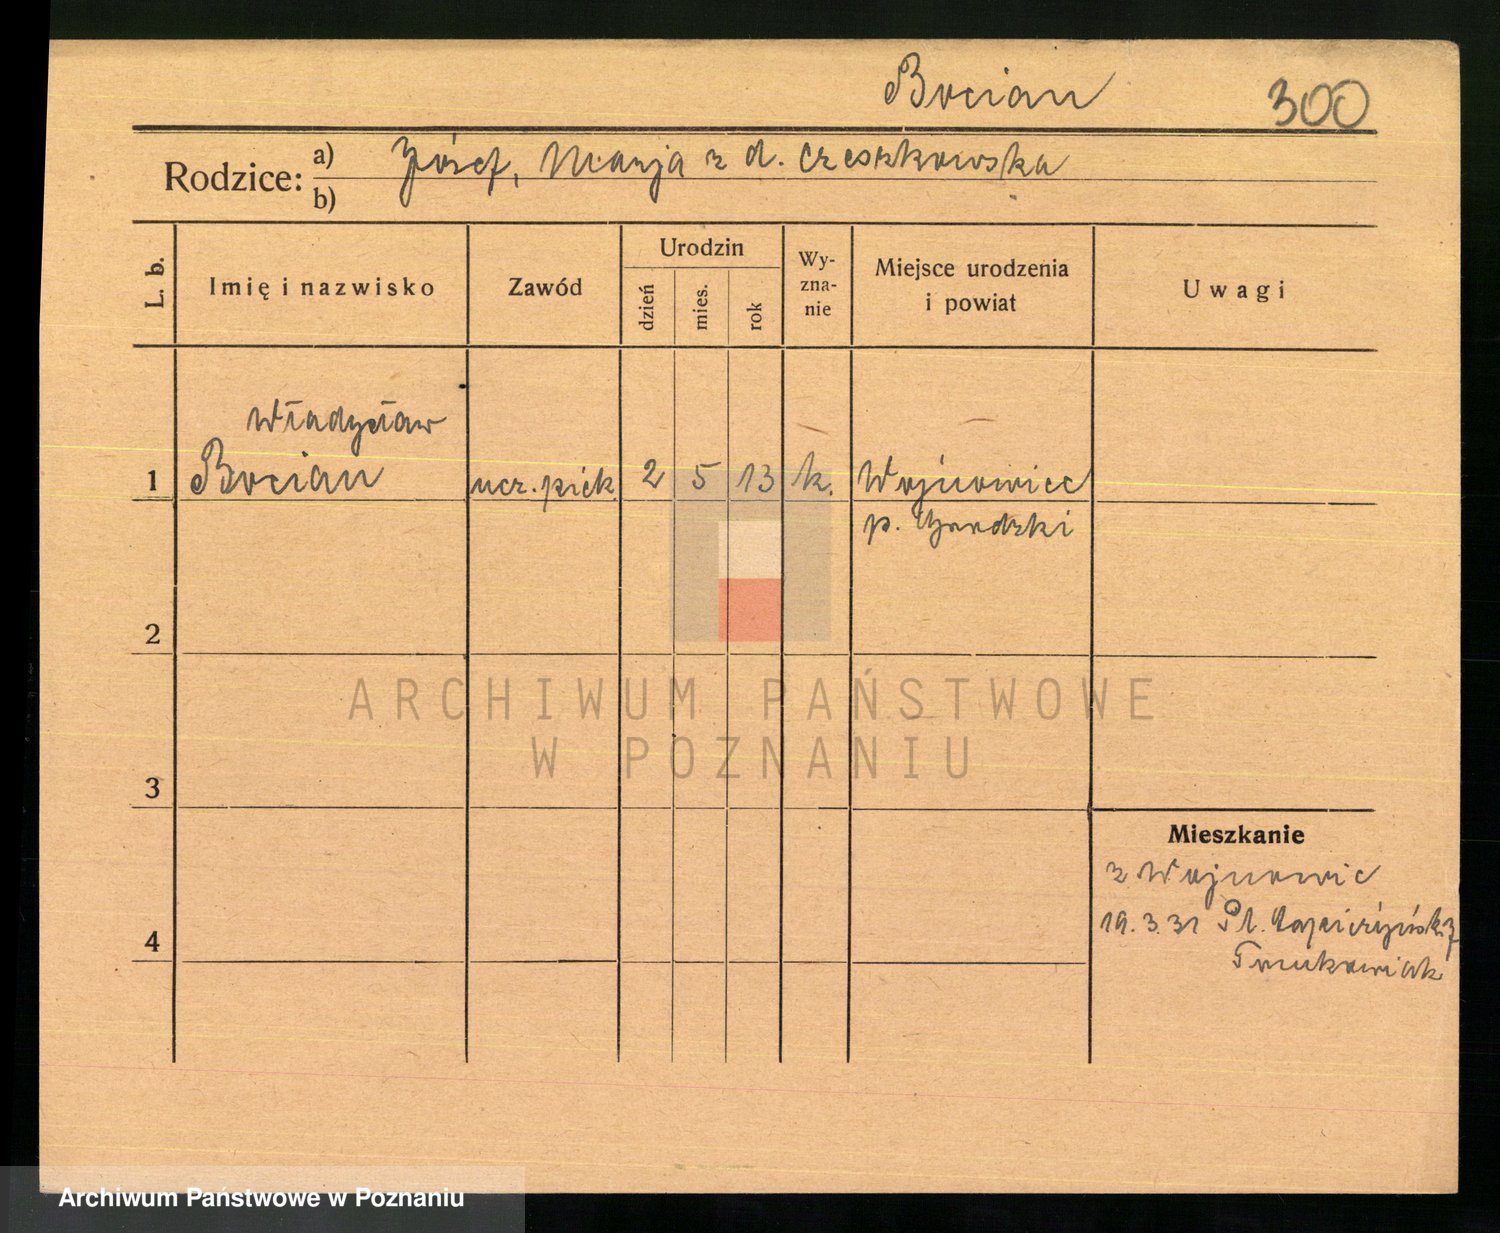 Bocian 300
Rodzice: a) Józef, Marja z d. Czeszkowska
b)
L. b. Imię i nazwisko Zawód Urodzin dzień mies. rok Wy-zna-nie Miejsce urodzenia i powiat Uwagi
Władysław
1 Bocian ucz. piek. 2 5 13 k. Wojnowice
p. Grodzki
2
ARCHIWUM PAŃSTWOWE
W POZNANIU
3
Mieszkanie
z Wojnowic
19. 3. 31 Pl.
4
Archiwum Państwowe w Poznaniu